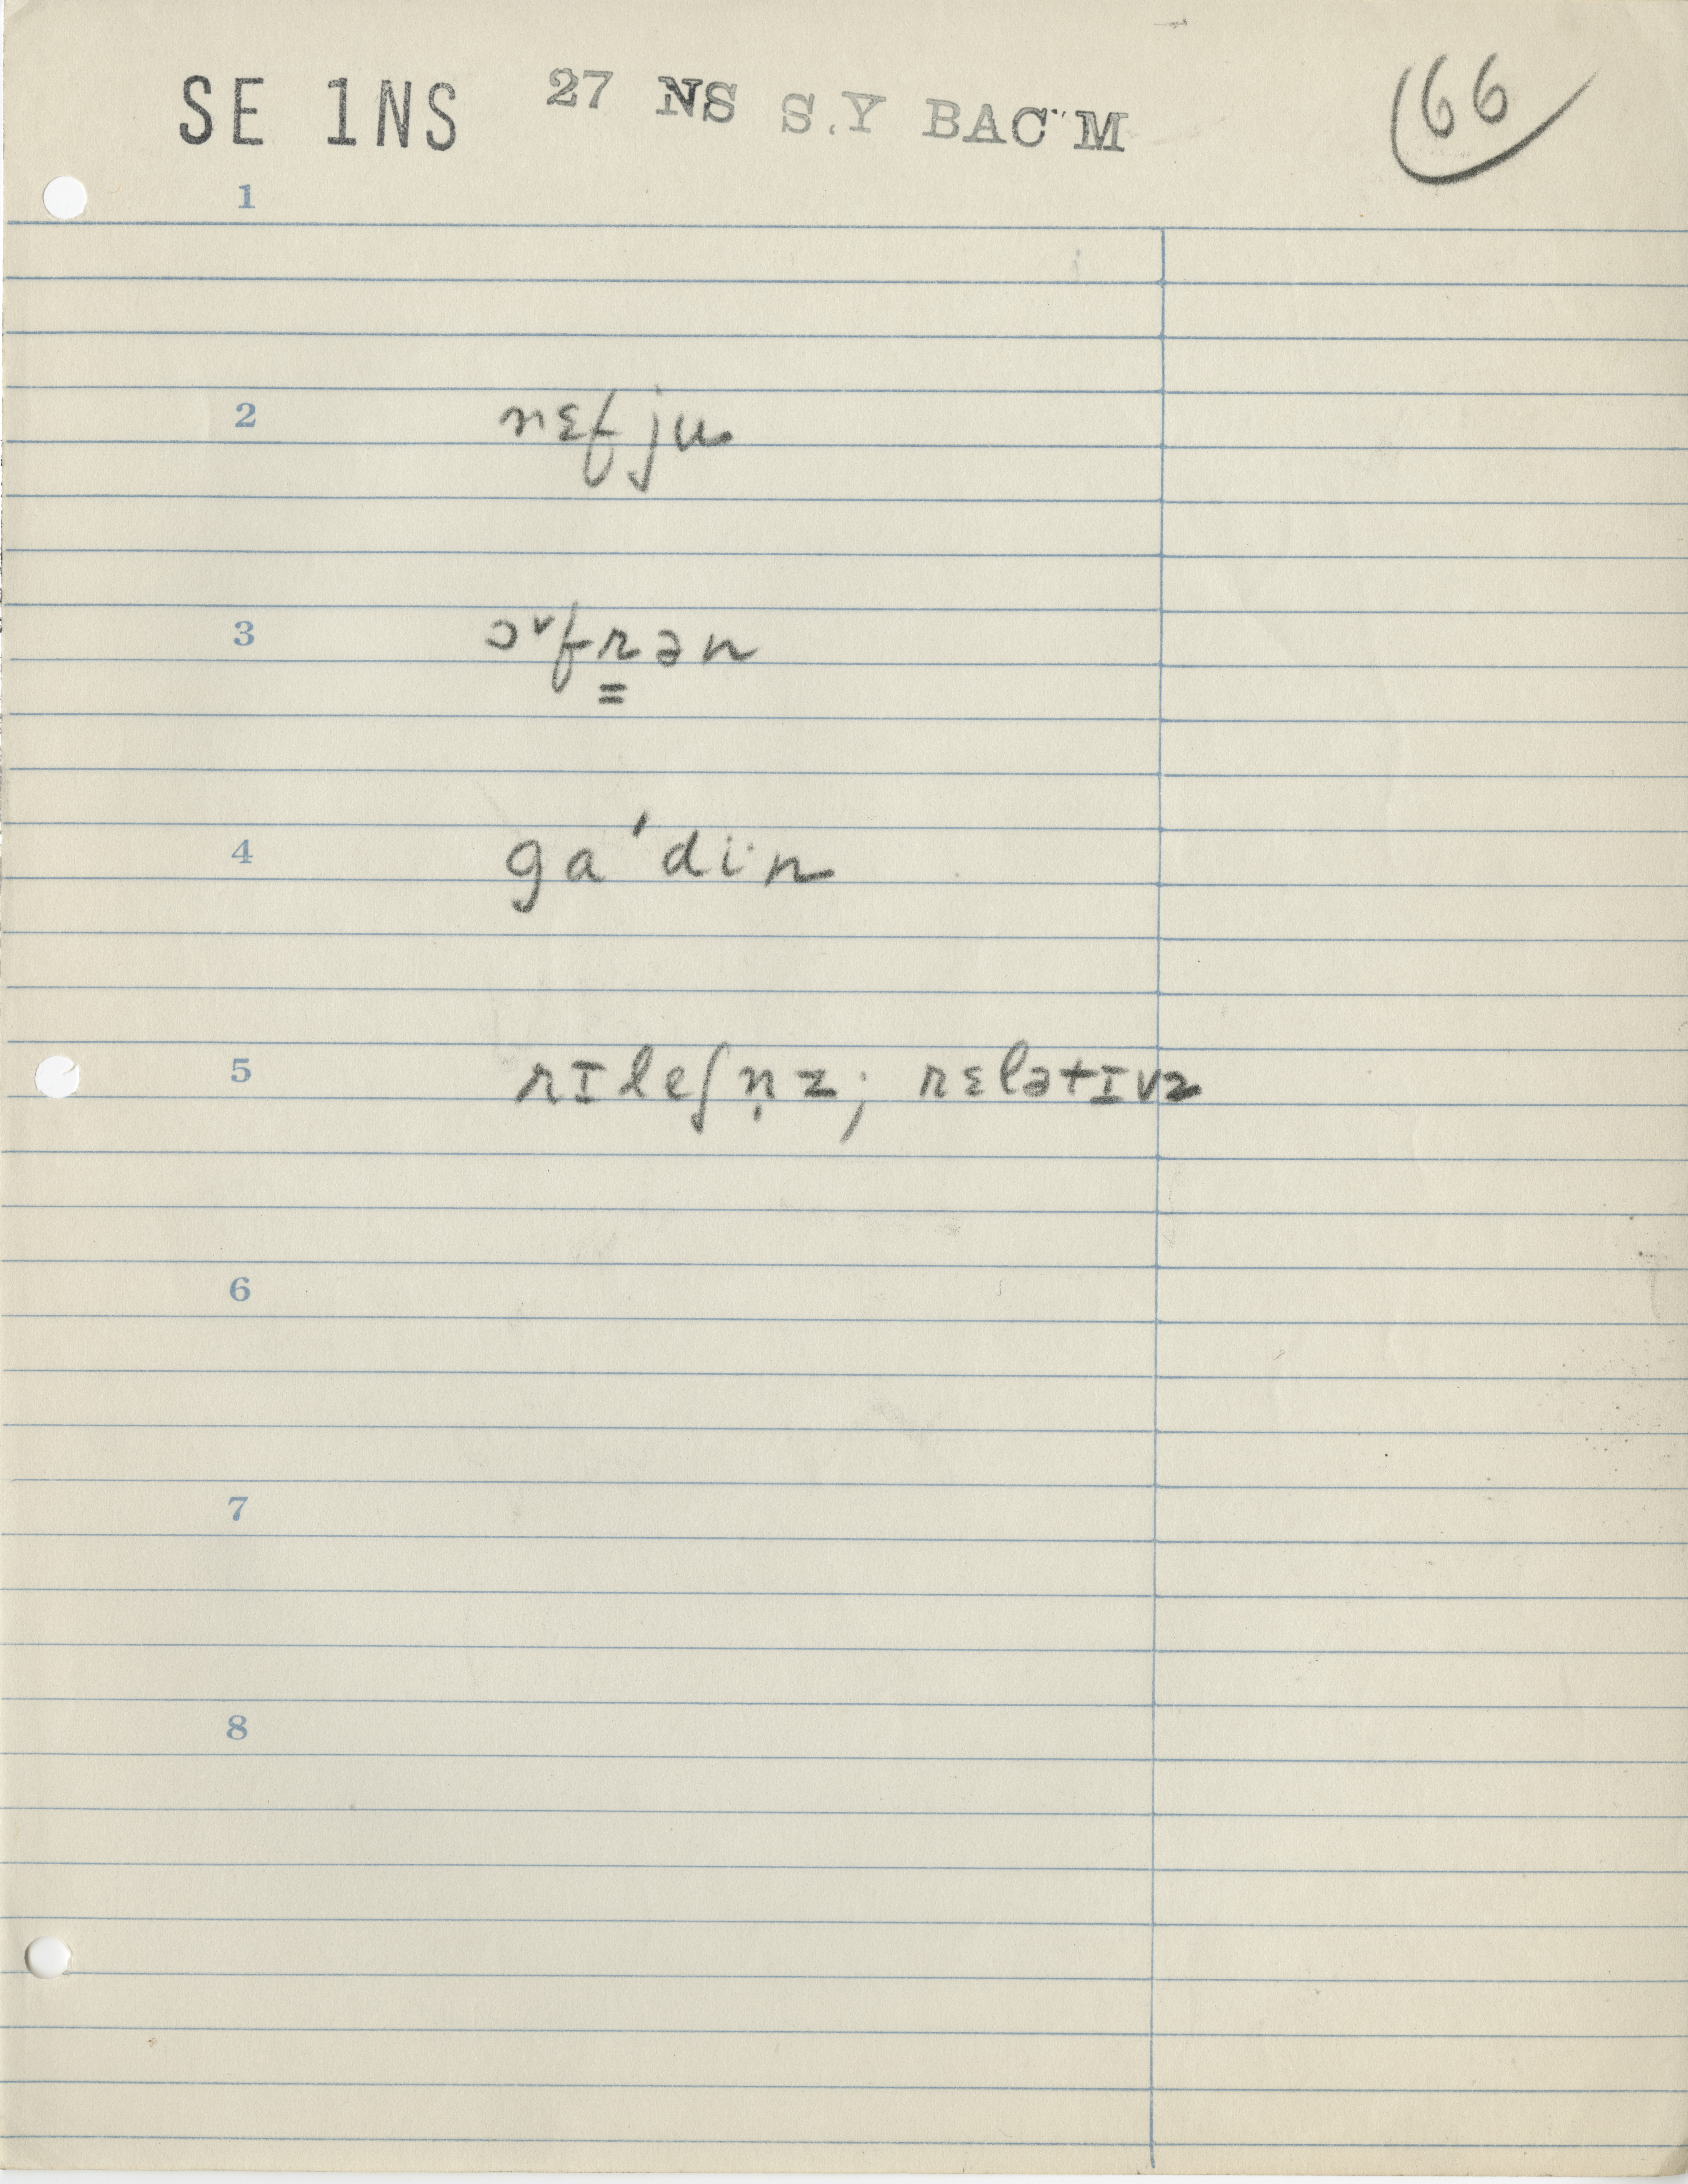 SE 1NS 27 NS S.Y BAC"M 66
1
2 nɛfju
3 ɔ˅frən
4 ga'di·n
5 rɪleʃn̩z; rɛlətɪvz
6
7
8